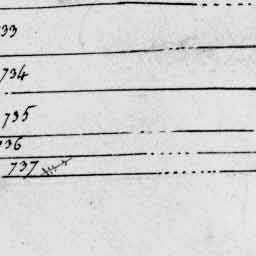 33
734
735
736
737